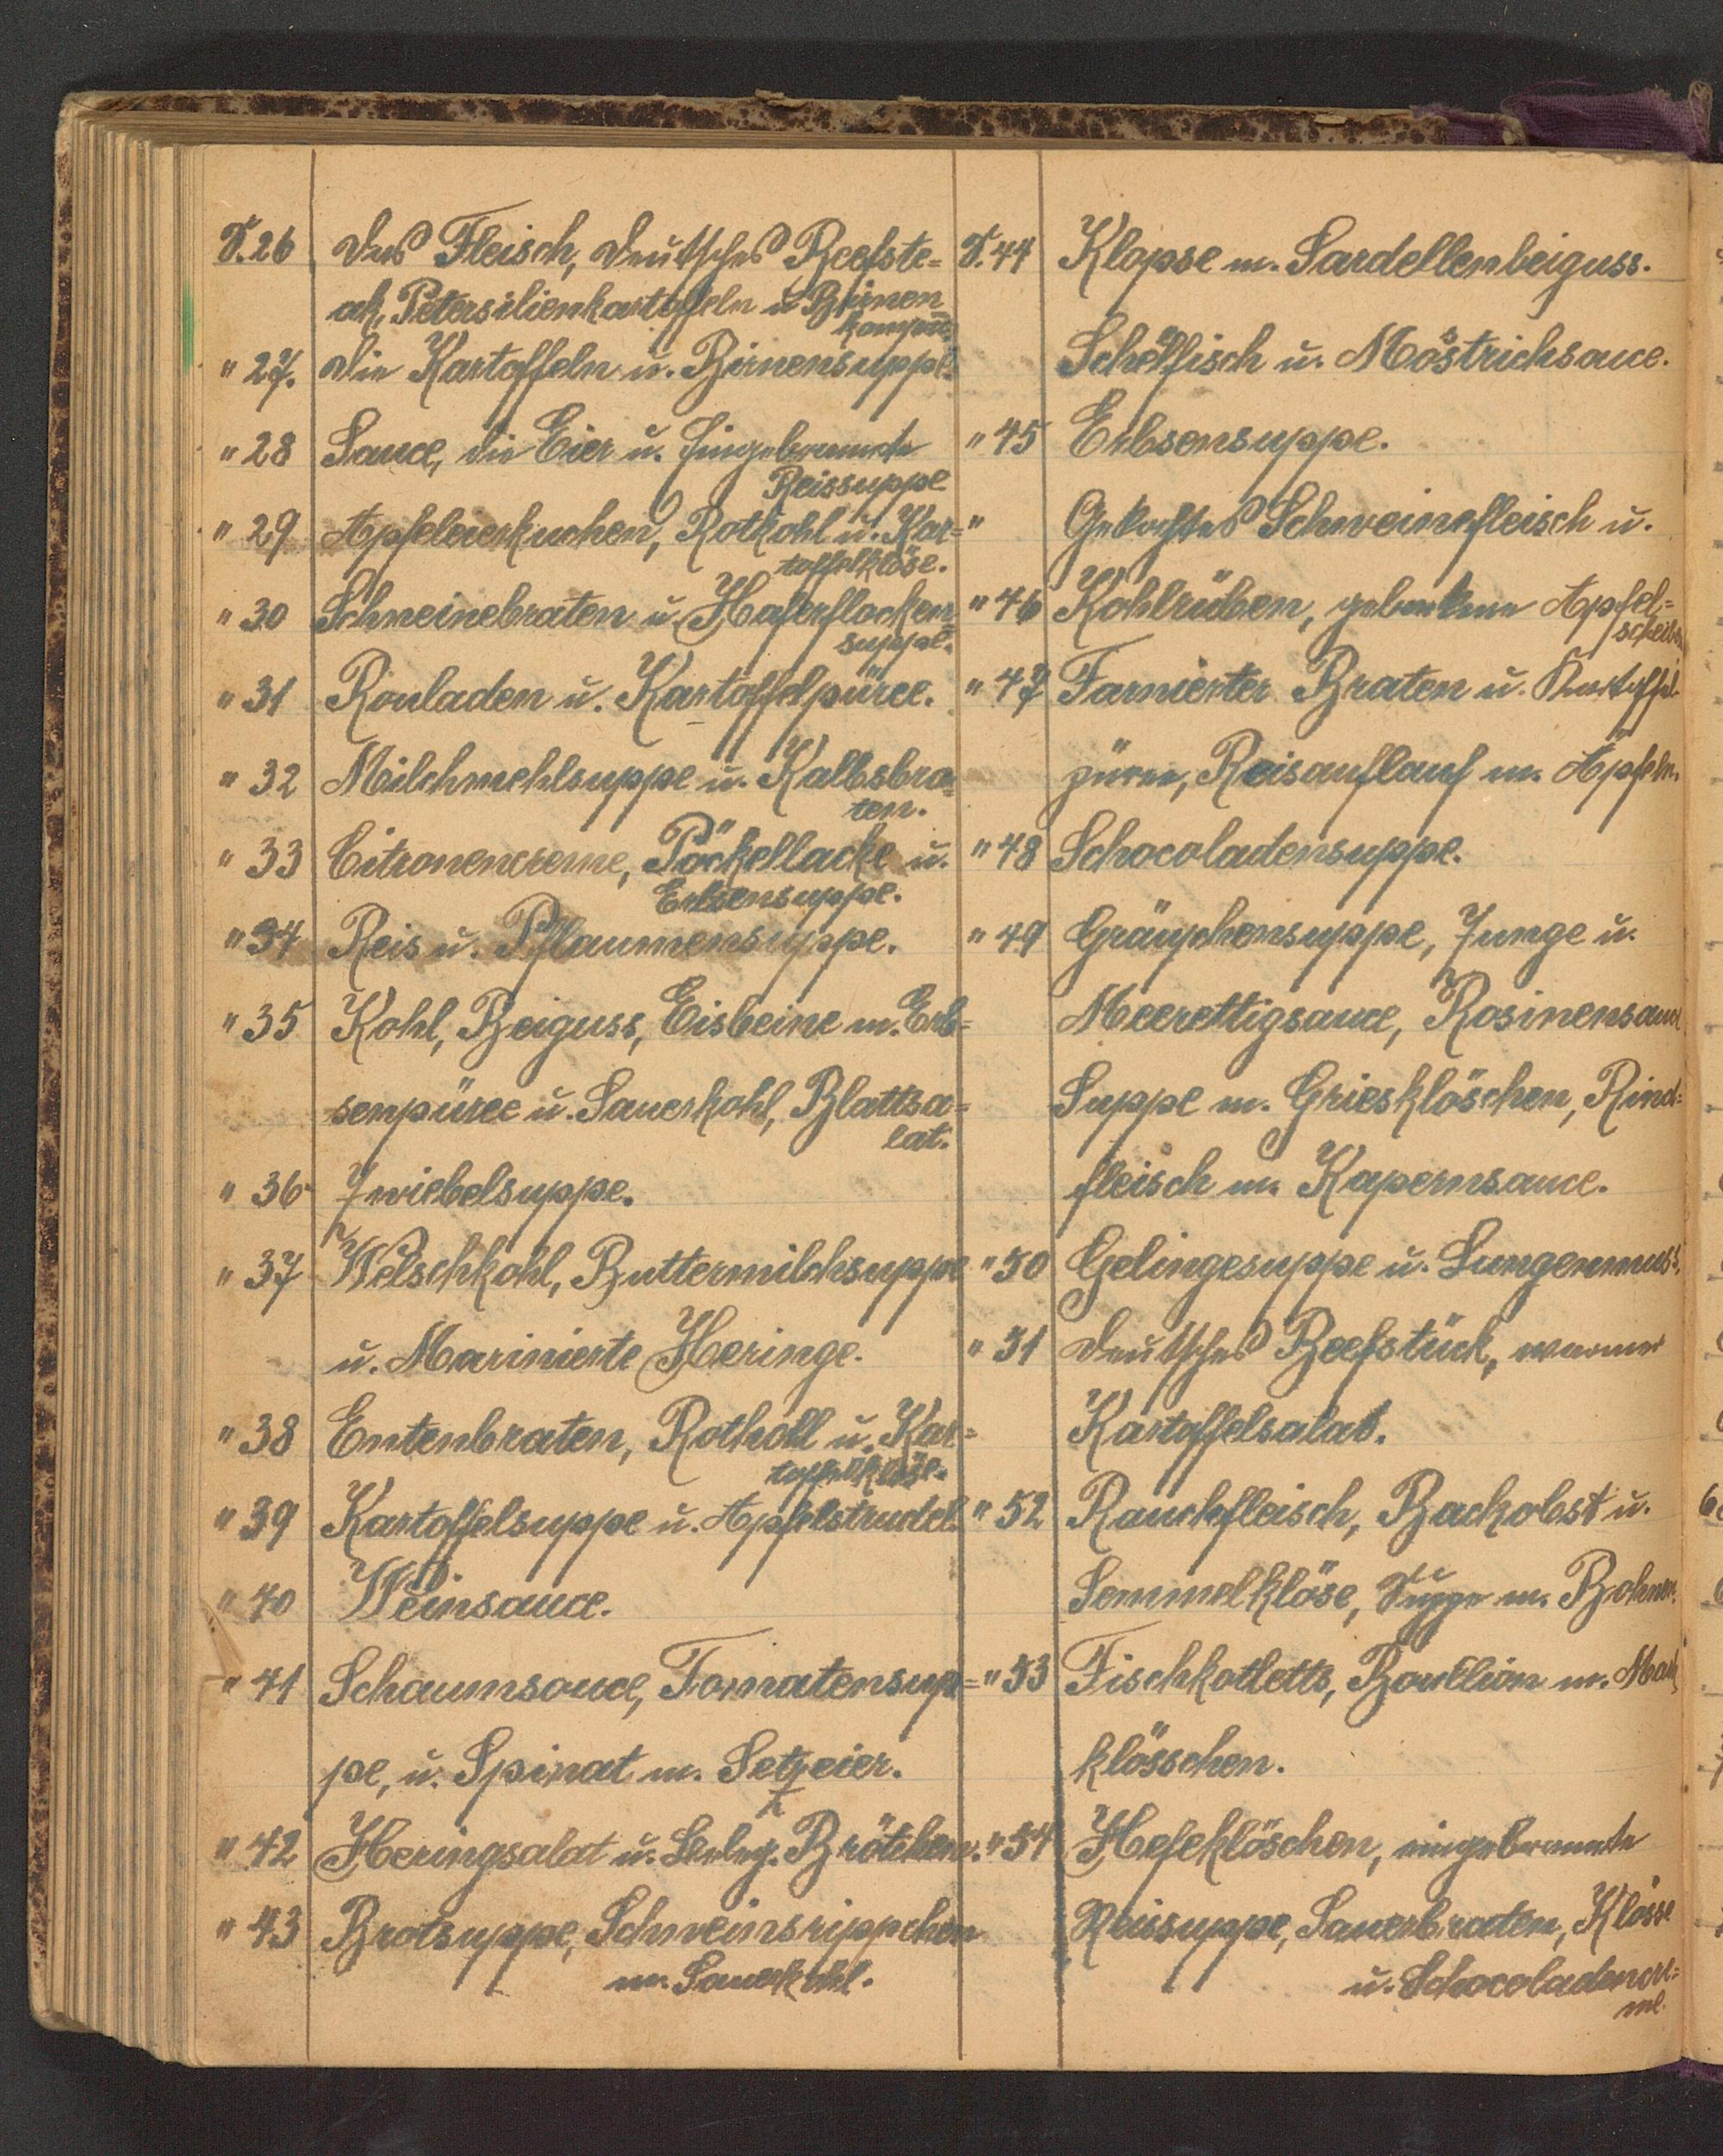 S. 26 Das Fleisch, Deutsches Beefste=
ak, Petersilienkartoffeln u. Birnen
kompott.
" 27. Die Kartoffeln u. Birnensuppe.
" 28 Sauce, die Eier u. Eingebrannte
Reissuppe
" 29 Apfeleierkuchen, Rotkohl u. Kar=
toffelklöse.
" 30 Schweinebraten u. Haferflocken=
suppe.
" 31 Rouladen u. Kartoffelpüree.
" 32 Milchmehlsuppe u. Kalbsbra=
ten.
" 33 Citronencreme, Pöckellacke u.
Erbsensuppe.
" 34 Reis u. Pflaumensuppe.
" 35 Kohl, Beiguss, Eisbeine m. Erb=
senpüree u. Sauerkohl, Blattsa=
lat.
" 36 Zwiebelsuppe.
" 37 Welschkohl, Buttermilchsuppe
u. Marinierte Heringe.
" 38 Entenbraten, Rotkohl u. Kar=
toffelklöse.
" 39 Kartoffelsuppe u. Apfelstrudel.
" 40 Weinsauce.
" 41 Schaumsauce, Tomatensup=
pe, u. Spinat m. Setzeier.
" 42 Heringsalat u. Brötchen.
" 43 Brotsuppe, Schweinsrippchen
m. Sauerkohl.
S. 44 Klopse m. Sardellenbeiguss.
Schellfisch u. Möstrichsauce.
" 45 Erbsensuppe.
" Gekochtes Schweinefleisch u.
" 46 Kohlrüben, gebackene Apfel=
scheiben
" 47 Farnierter Braten u. Kartoffel
püree, Reisauflauf m. Äpfeln.
" 48 Schocoladensuppe.
" 49 Gräupchensuppe, Zunge u.
Meerettigsauce, Rosinensauce
Suppe m. Griesklöschen, Rind=
fleisch m. Kapernsauce.
" 50 Gelingesuppe u. Lungenmuss.
" 51 Deutsches Beefstück, warmer
Kartoffelsalat.
" 52 Rauchfleisch, Backobst u.
Semmelklöse, Suppe m. Bohnen.
" 53 Fischkotletts, Boullion m. Mark
klösschen.
" 54 Hefeklöschen, eingebrannte
Reissuppe, Sauerbraten, Klösse
u. Schocoladencre=
me.